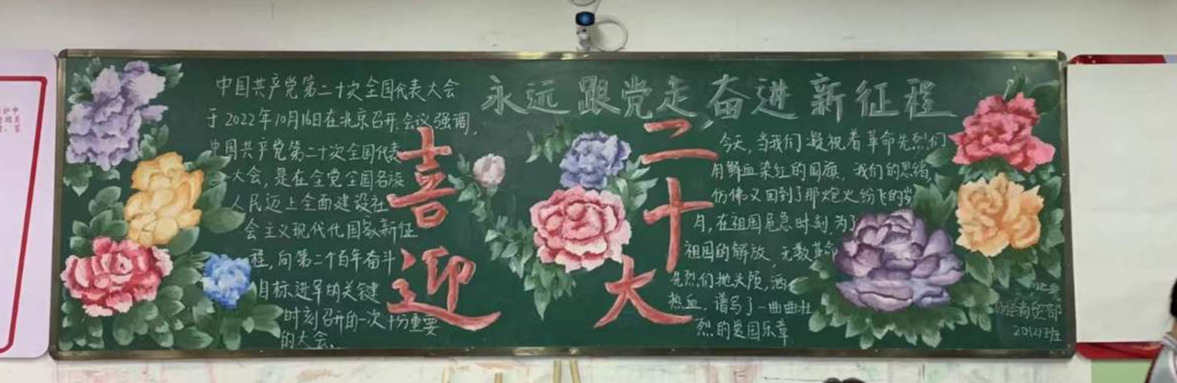 中国共产党第二十次全国代表大会
于2022年10月16日在北京召开,会议强调,
中国共产党第二十次全国代表
大会,是在全党全国各族
人民迈上全面建设社
会主义现代化国家新征
程,向第二个百年奋斗
目标进军的关键
时刻召开的一次十分重要
的大会。
喜迎
永远跟党走,奋进新征程
二十大
今天,当我们凝视着革命先烈们
用鲜血染红的国旗,我们的思绪
仿佛又回到了那炮火纷飞的岁
月,在祖国危急时刻,为了
祖国的解放,无数革命
先烈们抛头颅,洒
热血,谱写了一曲曲壮
烈的爱国乐章
商贸部
班